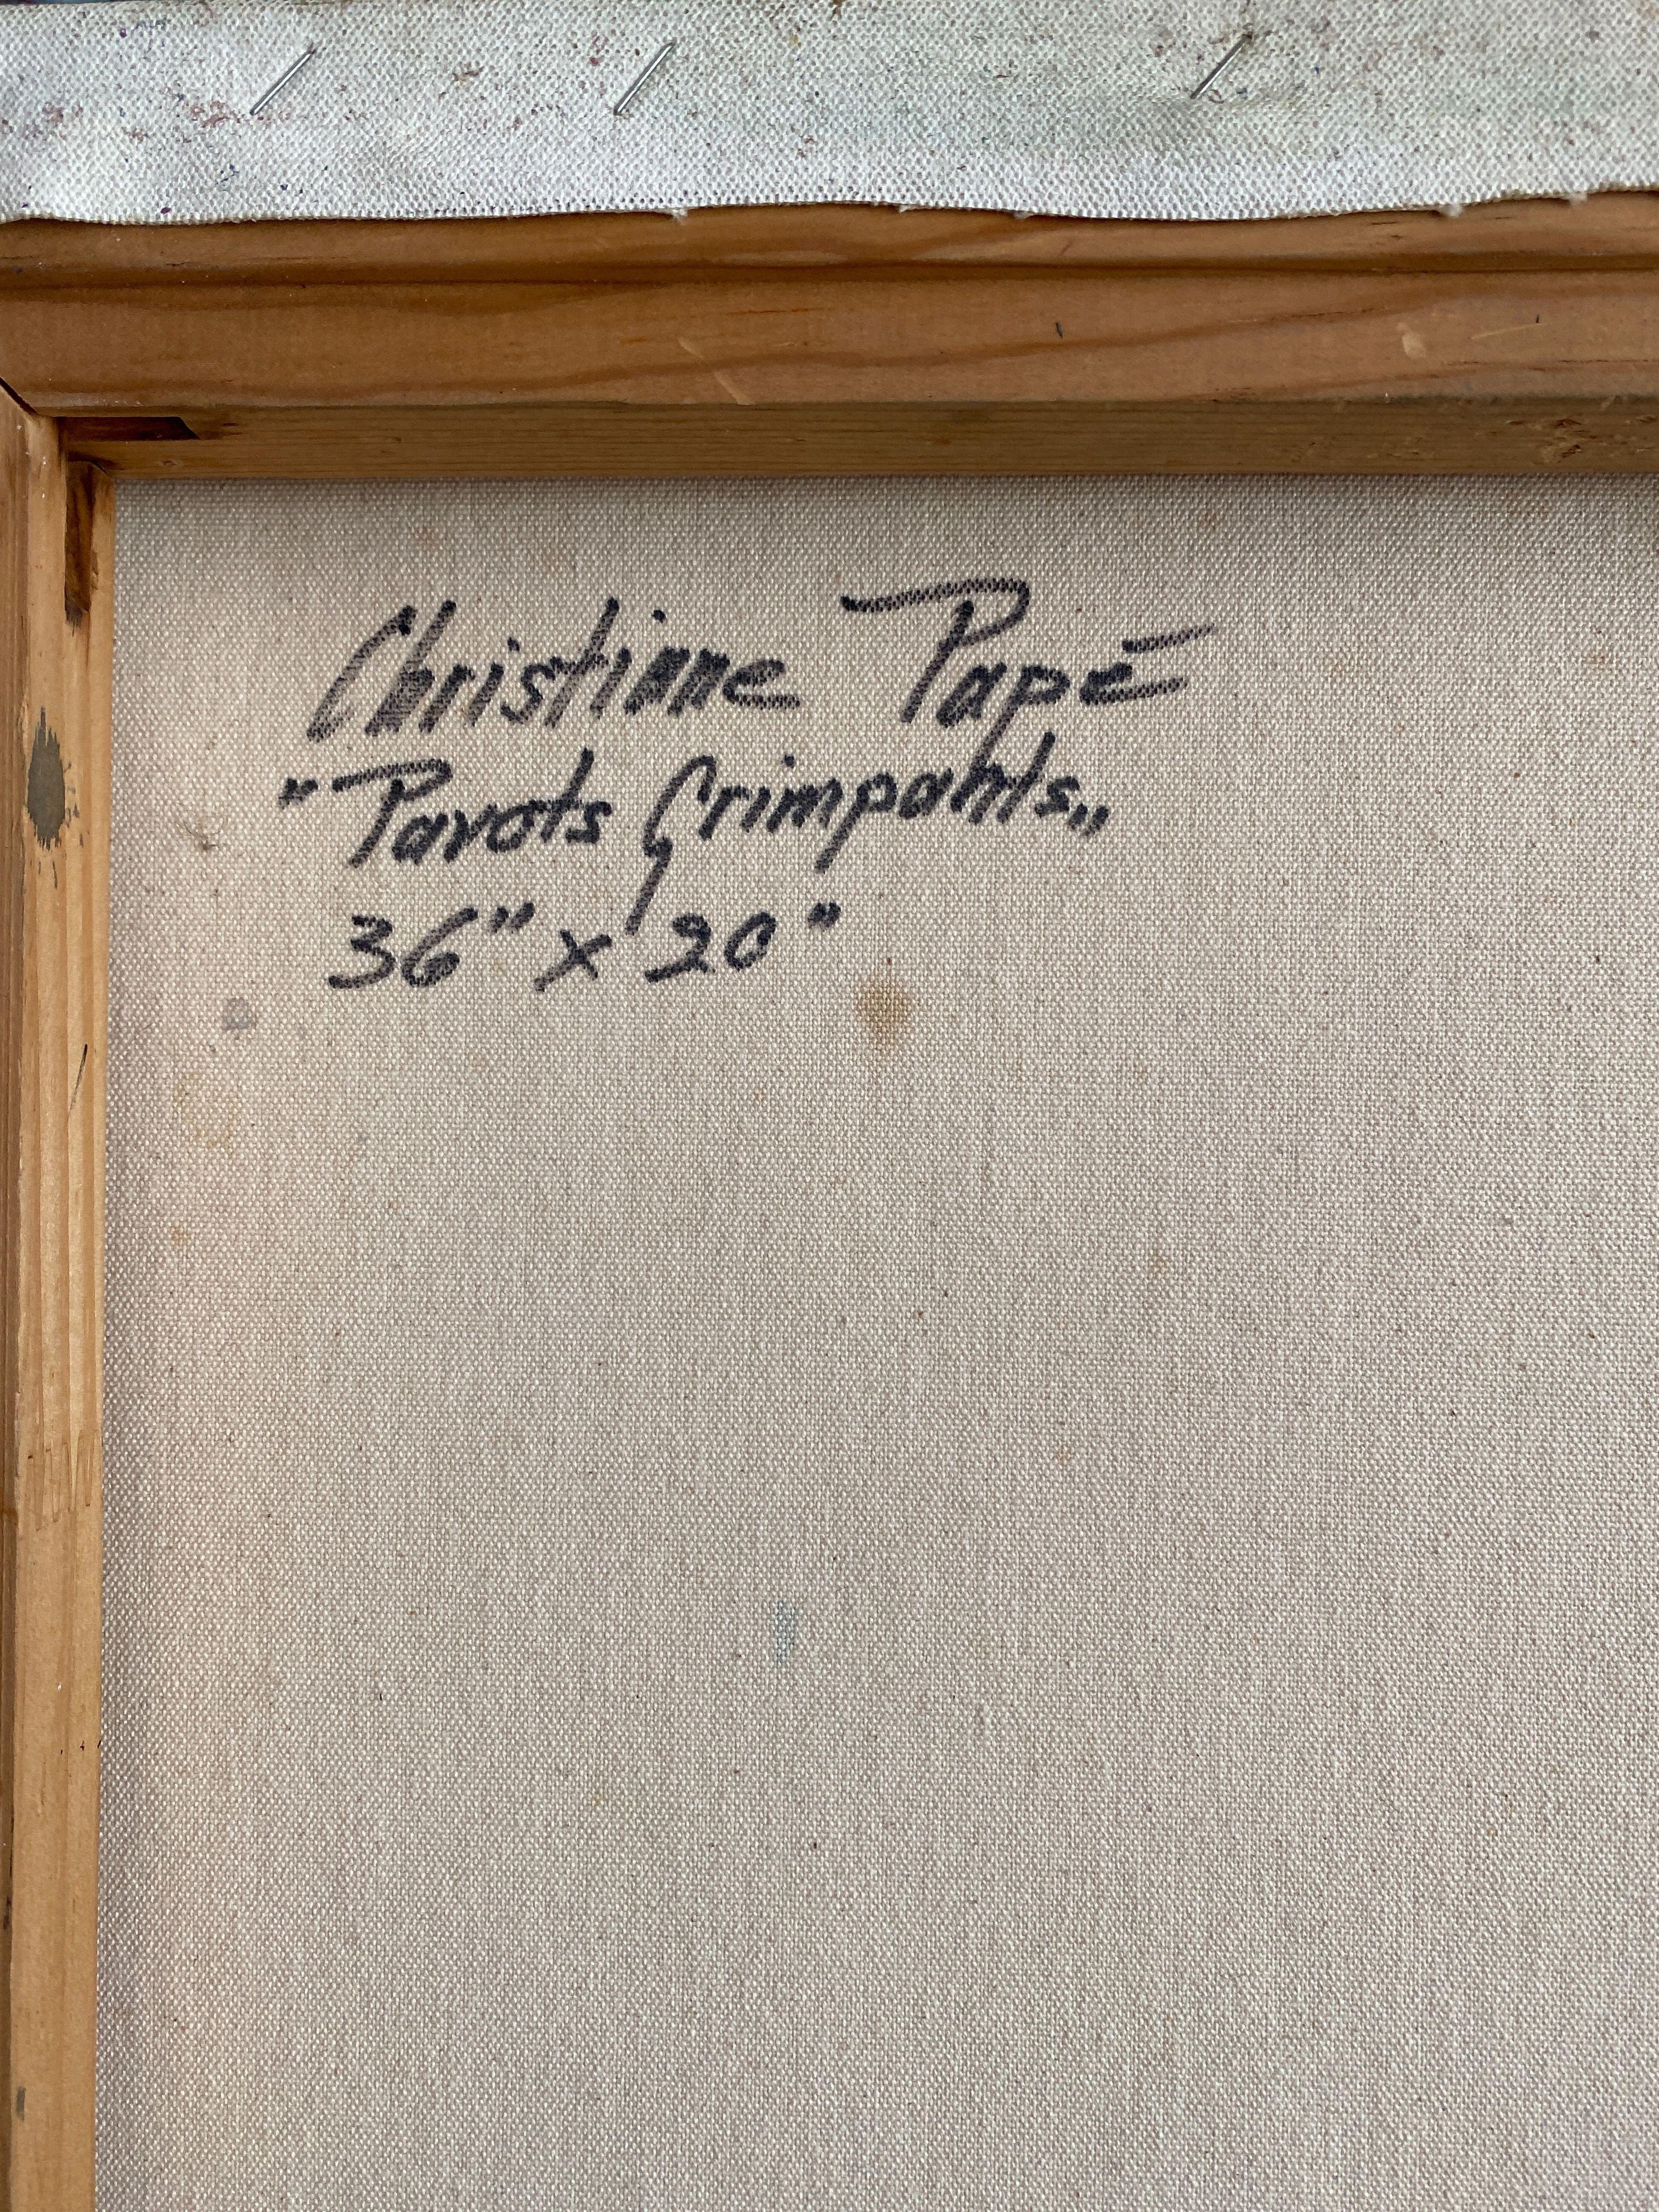 Christiane Papé
"Pavots Grimpants"
36" x 20"